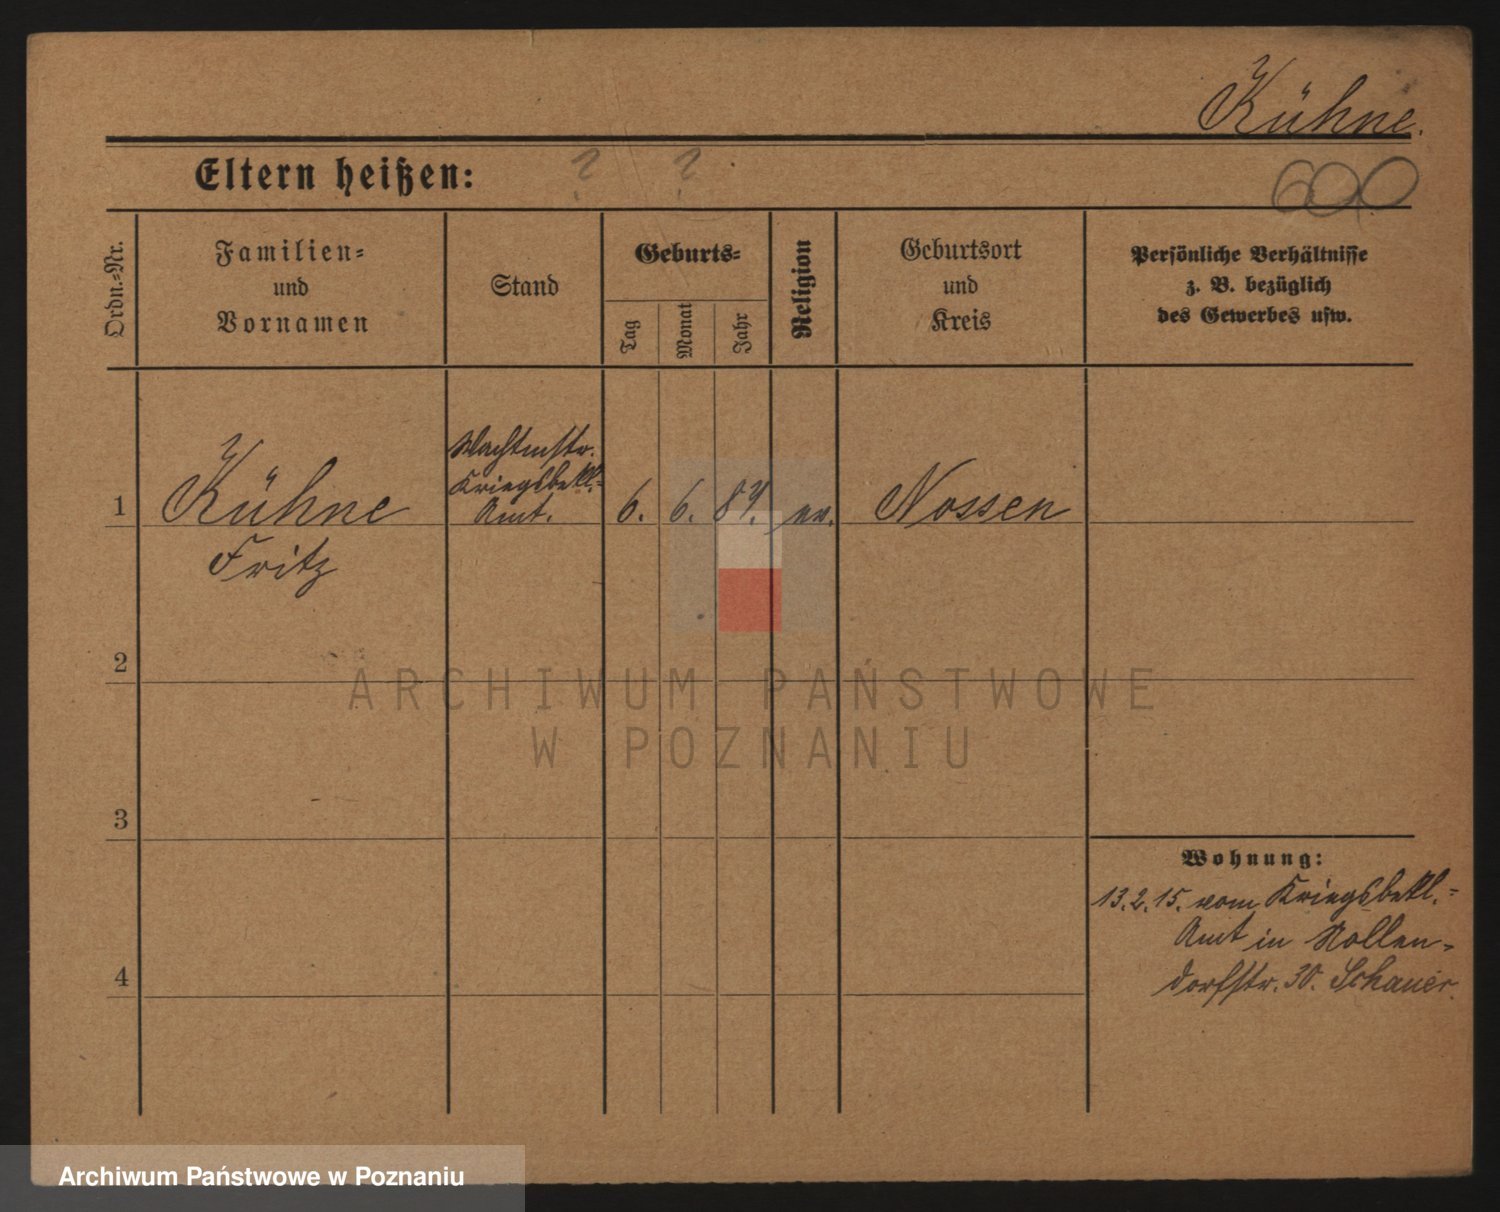 Kühne.
Eltern heißen: ? ?
600
Ordn.-Nr.
Familien-
und
Vornamen
Stand
Geburts-
Tag
Monat
Jahr
Religion
Geburtsort
und
Kreis
Persönliche Verhältnisse
z. B. bezüglich
des Gewerbes usw.
1
Kühne
Fritz
Wachtmstr.
Kriegsbekl.-
Amt.
6. 6. 84. ev.
Nossen
2
3
4
Wohnung:
13.2.15. vom Kriegsbekl.-
Amt in Nollen-
dorfstr. 30. Schauer.
ARCHIWUM PAŃSTWOWE
W POZNANIU
Archiwum Państwowe w Poznaniu